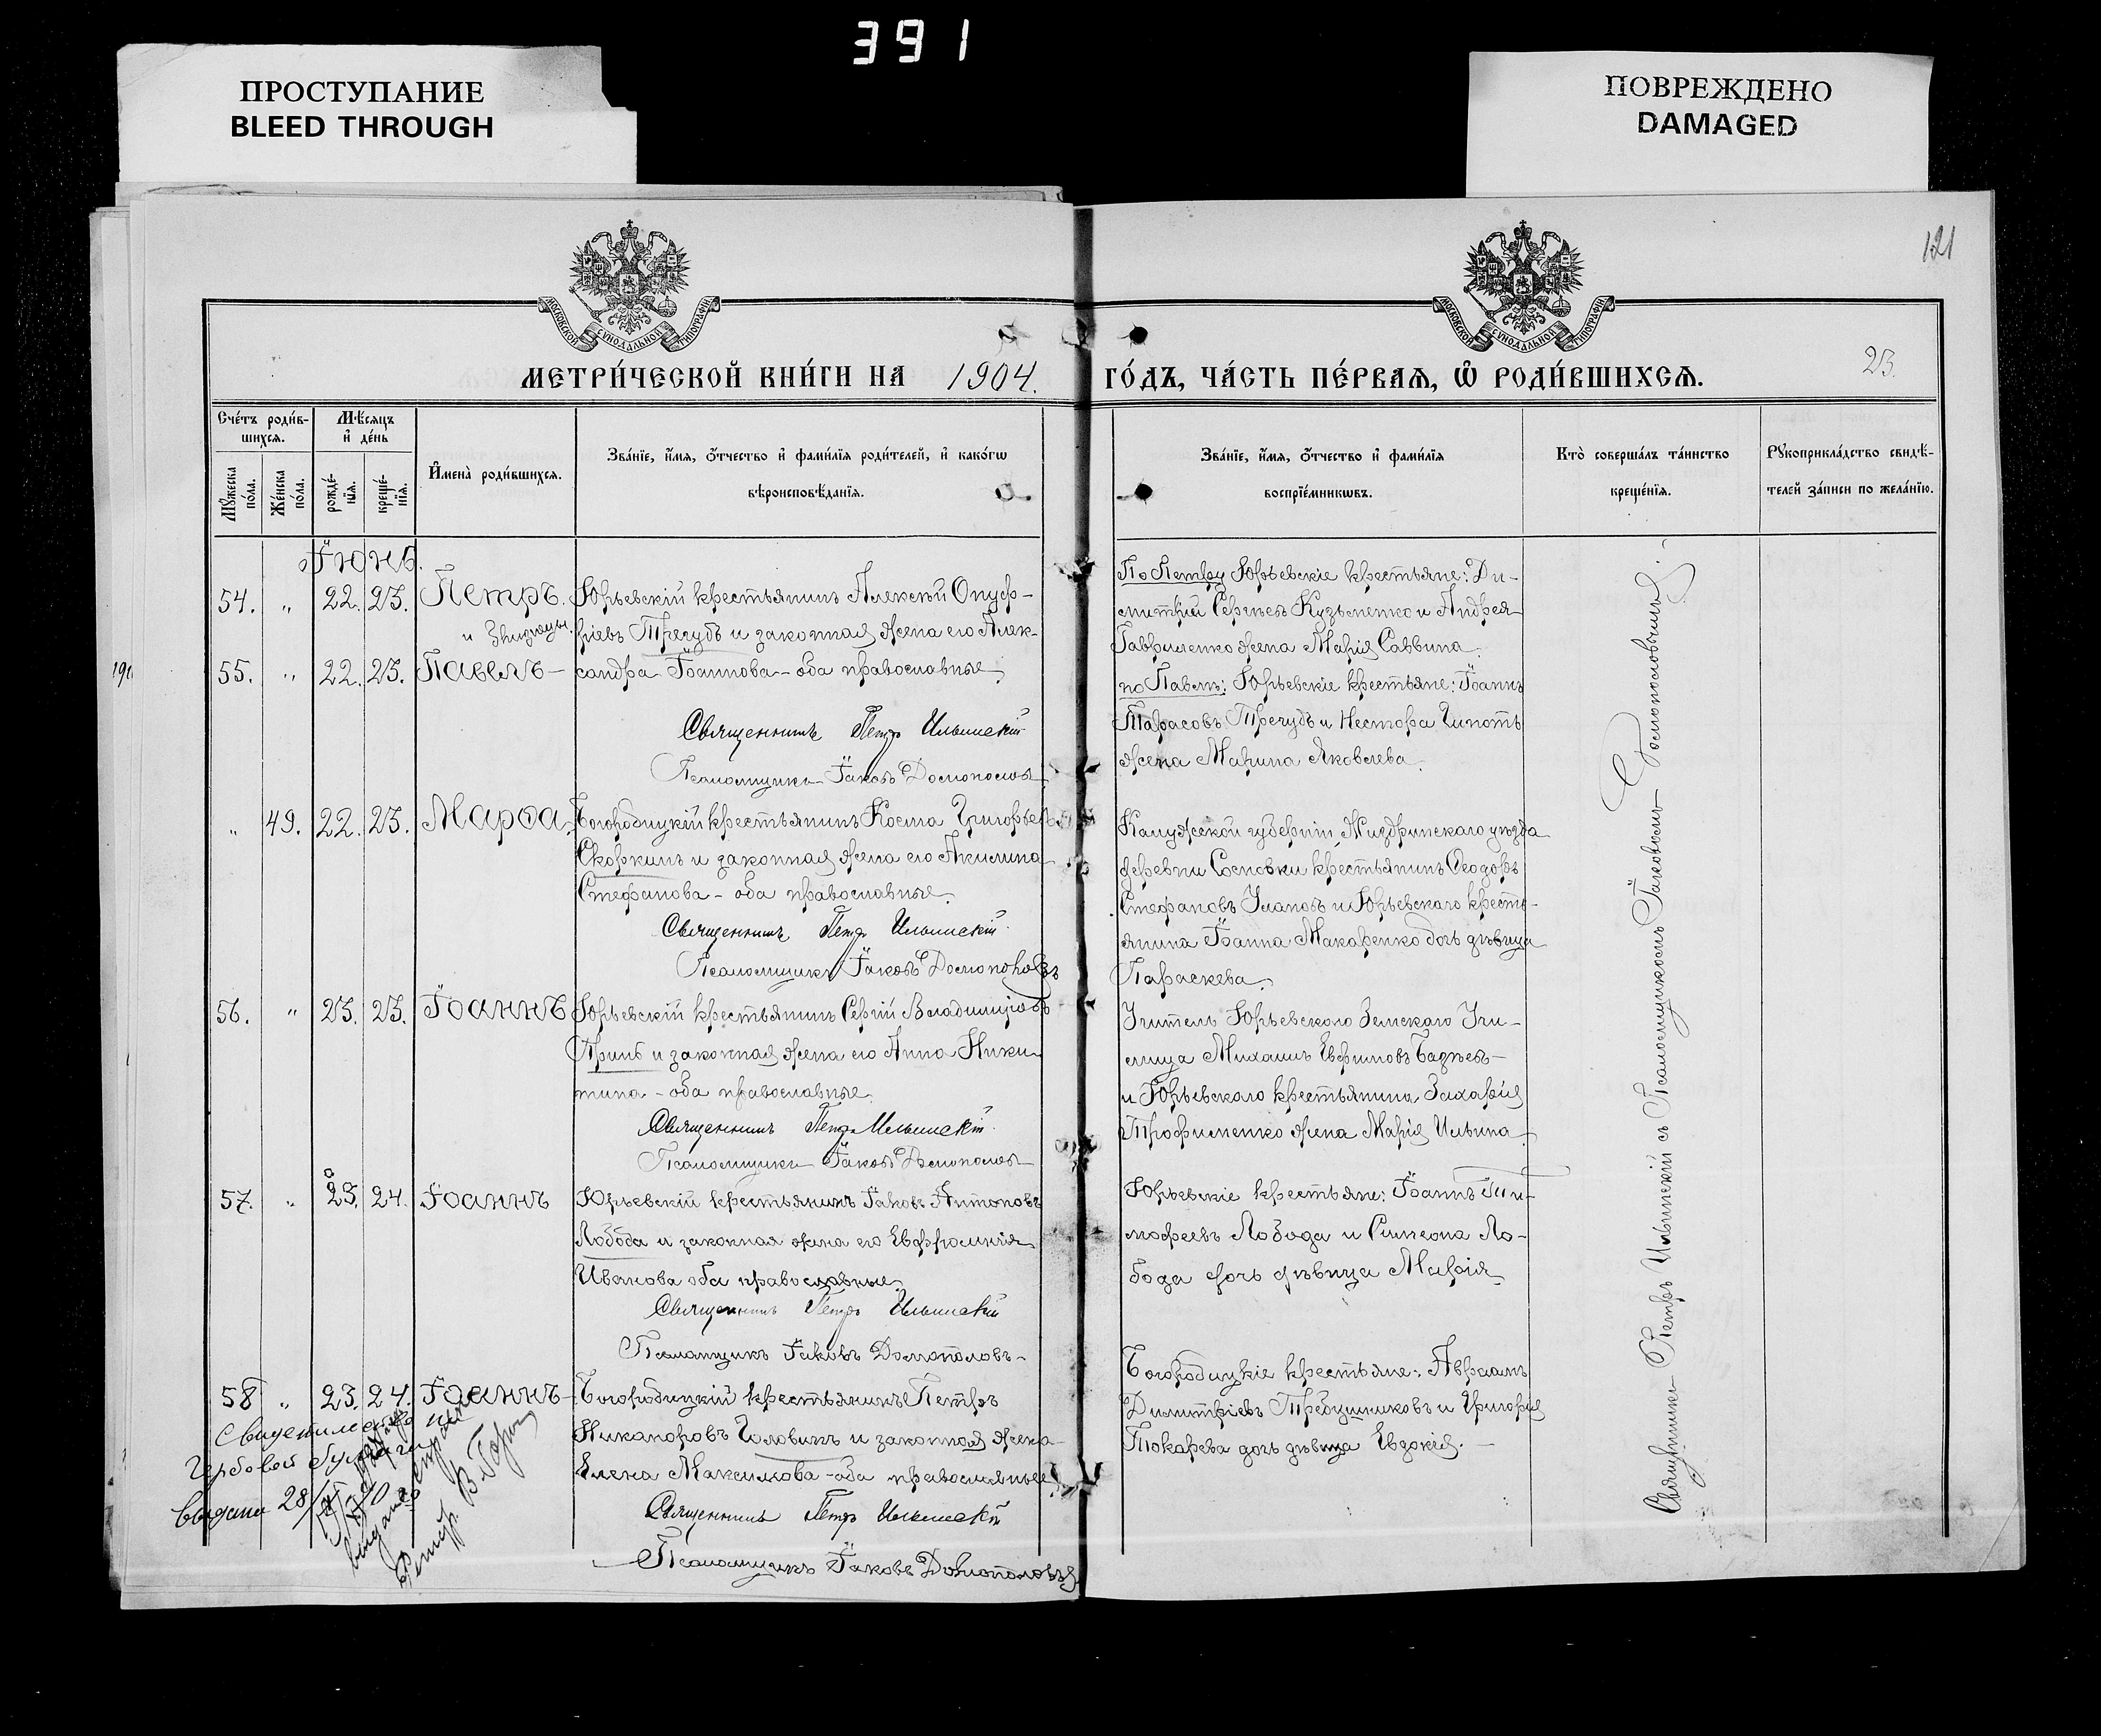 391
ПРОСТУПАНИЕ
BLEED THROUGH
ПОВРЕЖДЕНО
DAMAGED
121
МОСКОВСКОЙ СУНОДАЛЬНОЙ ТИПОГРАФІИ
МОСКОВСКОЙ СУНОДАЛЬНОЙ ТИПОГРАФІИ
МЕТРИ́ЧЕСКОЙ КНИ́ГИ НА 1904.
ГО́ДЪ, ЧА́СТЬ ПЕ́РВАЯ, Ѿ РОДИ́ВШИХСЯ.
23.
Сче́тъ роди́в-
шихся.
Мѣ́сяцъ
и҆ де́нь
Му́жеска
по́ла.
Же́нска
по́ла.
рожде́-
нїя.
креще́-
нїя.
И҆мена̀ роди́вшихся.
Зва́нїе, и҆́мя, ѻ҆́тчество и҆ фами́лїя роди́телей, и҆ како́гѡ
вѣроисповѣ́данїя.
Зва́нїе, и҆́мя, ѻ҆́тчество и҆ фами́лїя
воспрїе́мникѡвъ.
Кто̀ соверша́лъ та́инство
креще́нїя.
Рꙋкоприкла́дство свидѣ́-
телей за́писи по жела́нїю.
Іюнь.
54. " 22. 23. Петръ.
и близнецы
55. " 22. 23. Павелъ –
Юрьевскій крестьянинъ Алексѣй Онуф-
ріевъ Трегубъ и законная жена его Алек-
сандра Іоаннова – оба православные.
Священникъ Петръ Ильинскій
Псаломщикъ Іаковъ Домополовъ
По Петру Юрьевскіе крестьяне: Ди-
митрій Сергѣевъ Кузьменко и Андрея
Гавриленко жена Марія Саввина.
по Павлѣ: Юрьевскіе крестьяне: Іоаннъ
Тарасовъ Трегубъ и Нестора
жена Марина Яковлева.
" 49. 22. 23. Марѳа.
Богородицкій крестьянинъ Косма Григорьевъ
Скоркинъ и законная жена его Акилина
Стефанова – оба православные.
Священникъ Петръ Ильинскій
Псаломщикъ Іаковъ Домополовъ
Калужской губерніи, Жиздринскаго уѣзда
деревни Сосновки крестьянинъ Ѳеодоръ
Стефановъ Улановъ и Юрьевскаго кресть-
янина Іоанна Макаренко дочь дѣвица
Параскева.
56. " 23. 23. Іоаннъ
Юрьевскій крестьянинъ Сергій Владиміровъ
и законная жена его Анна Ники-
тина – оба православные.
Священникъ Петръ Ильинскій
Псаломщикъ Іаковъ Домополовъ
Учитель Юрьевскаго Земскаго Учи-
лища Михаилъ Евфимовъ
и Юрьевскаго крестьянина Захарія
Трофименко жена Марія Ильина.
57. " 23. 24. Іоаннъ
Юрьевскій крестьянинъ Іаковъ Антоновъ
Лобода и законная жена его Евфросинія
Иванова оба православные.
Священникъ Петръ Ильинскій
Псаломщикъ Іаковъ Домополовъ –
Юрьевскіе крестьяне: Іоаннъ Ти-
моѳеевъ Лобода и Симеона Ло-
бода дочь дѣвица Марія.
58 " 23. 24. Іоаннъ –
Богородицкій крестьянинъ Петръ
Никаноровъ Головинъ и законная жена
Елена Максимова – оба православные
Священникъ Петръ Ильинскій
Псаломщикъ Іаковъ Домополовъ
Богородицкіе крестьяне: Авраамъ
Димитріевъ Требушниковъ и Григорія
Токарева дочь дѣвица Евдокія. –
гербовой
выдано 28
Священникъ Петръ Ильинскій съ Псаломщикомъ Іаковомъ Домополовымъ.